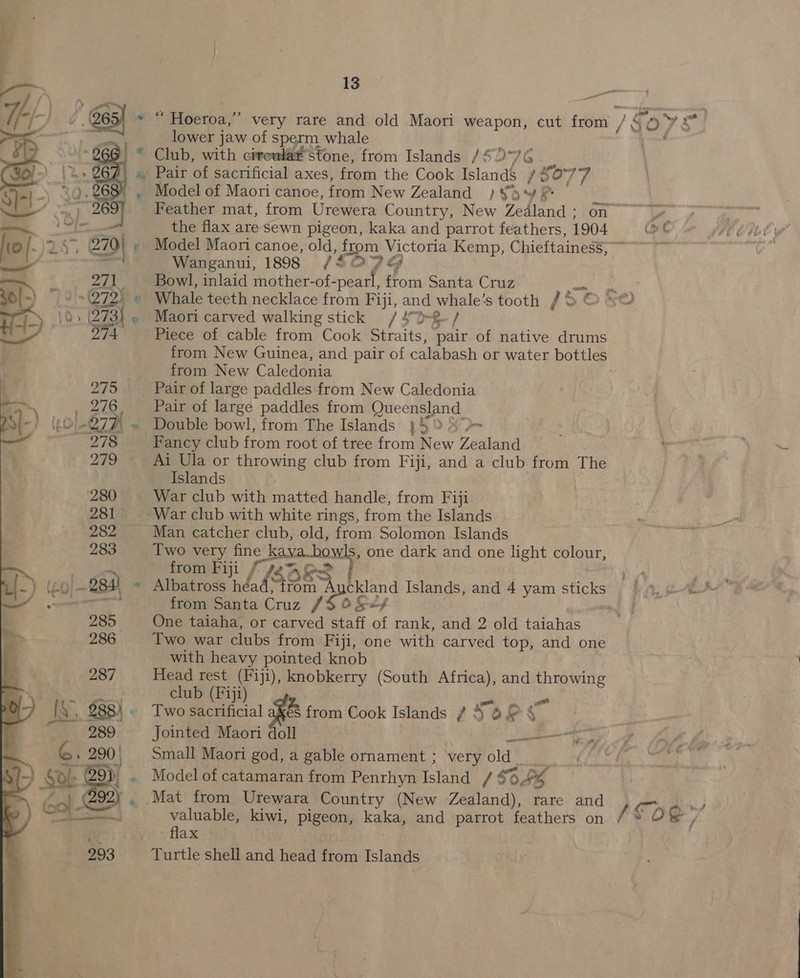 13
265 * “ Hoeroa,” very rare and old Maori weapon, cut from
lower jaw of sperm whale
266 * Club, with circular stone, from Islands 15076
267 Pair of sacrificial axes, from the Cook Islands 15077
268 Model of Maori canoe, from New Zealand
269 Feather mat, from Urewera Country, New Zealand ; on
the flax are sewn pigeon, kaka and parrot feathers, 1904
270 Model Maori canoe, old, from Victoria Kemp, Chieftainess,
Wanganui, 1898 15079
271 Bowl, inlaid mother-of-pearl, from Santa Cruz
272 Whale teeth necklace from Fiji, and whale’s tooth 15080
273 Maori carved walking stick 15081
274 Piece of cable from Cook Straits, pair of native drums
from New Guinea, and pair of calabash or water bottles
from New Caledonia
275 Pair of large paddles from New Caledonia
276 Pair of large paddles from Queensland
277 Double bowl, from The Islands
278 Fancy club from root of tree from New Zealand
279 Ai Ula or throwing club from Fiji, and a club from The
Islands
280 War club with matted handle, from Fiji
281 War club with white rings, from the Islands
282 Man catcher club, old, from Solomon Islands
283 Two very fine kava bowls, one dark and one light colour,
from Fiji
284 Albatross head, from Auckland Islands, and 4 yam sticks
from Santa Cruz
285 One taiaha, or carved staff of rank, and 2 old taiahas
286 Two war clubs from Fiji, one with carved top, and one
with heavy pointed knob
287 Head rest (Fiji), knobkerry (South Africa), and throwing
club (Fiji)
288 Two sacrificial axes from Cook Islands 15085
289 Jointed Maori doll
290 Small Maori god, a gable ornament ; very old
291 Model of catamaran from Penrhyn Island
292 Mat from Urewara Country (New Zealand), rare and
valuable, kiwi, pigeon, kaka, and parrot feathers on
flax
293 Turtle shell and head from Islands